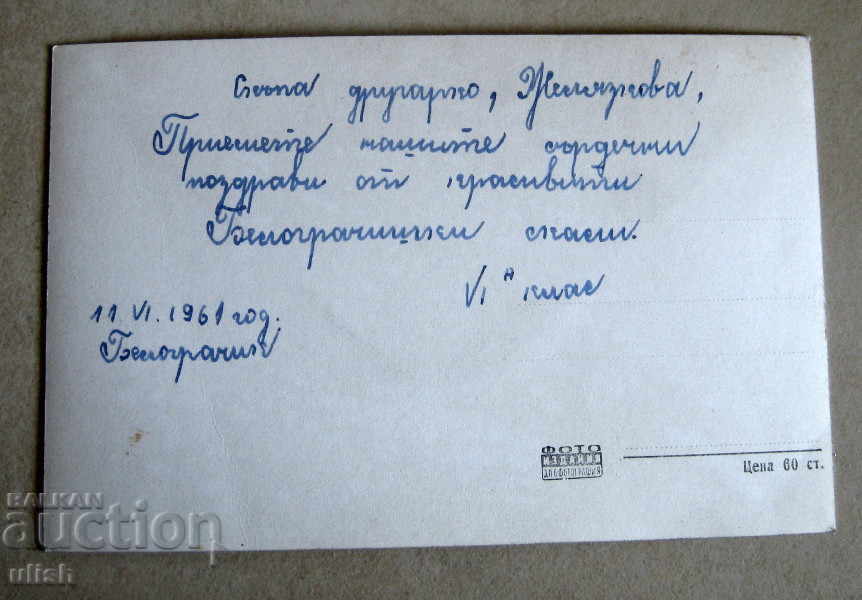 Скъпа другарко, Желязкова,
Приемете нашите сърдечни
поздрави от красивите
Белограчишки скали.
VI а клас
11. VI. 1961 год.
Белограчик
ФОТО
ИЗДАНИЕ
ДПФОТОГРАФИЯ
Цена 60 ст.
BALKAN
auction
ulish